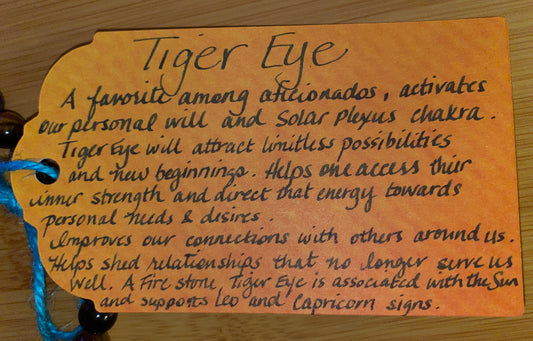 Tiger Eye
A favorite among aficionados, activates
our personal will and Solar Plexus chakra.
Tiger Eye will attract limitless possibilities
and new beginnings. Helps one access their
inner strength and direct that energy towards
personal needs & desires.
Improves our connections with others around us.
Helps shed relationships that no longer serve us
well. A Fire stone, Tiger Eye is associated with the Sun
and supports Leo and Capricorn signs.